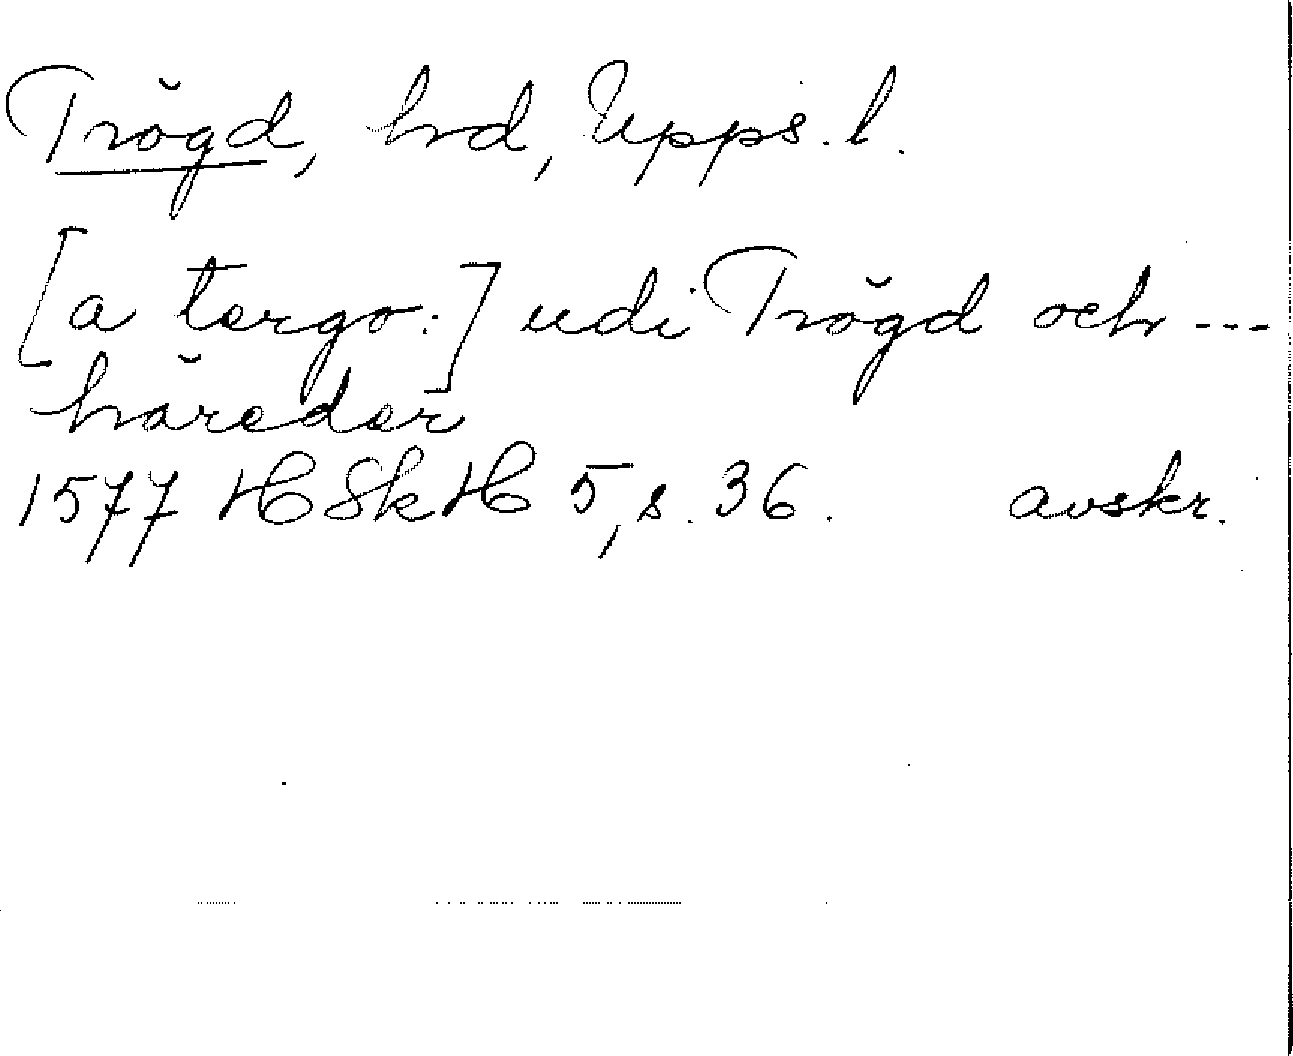 Trögd, hrd, Upps. l.
[a tergo:] udi Trögd och ---
häreder
1577 HSkH 5, s. 36. avskr.